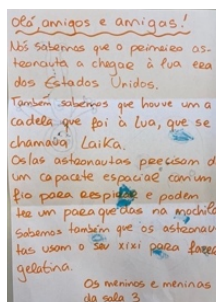 Olá, amigos e amigas!
Nós sabemos que o primeiro as-
tronauta a chegar à lua era
dos Estados Unidos.
Também sabemos que houve uma
cadela que foi à Lua, que se
chamava Laika.
Os/as astronautas precisam d
um capacete espacial com um
fio para respirar e podem
ter um paraquedas na mochila
Sabemos também que os astronau-
tas usam o seu xixi para fazer
gelatina.
Os meninos e meninas
da sala 3